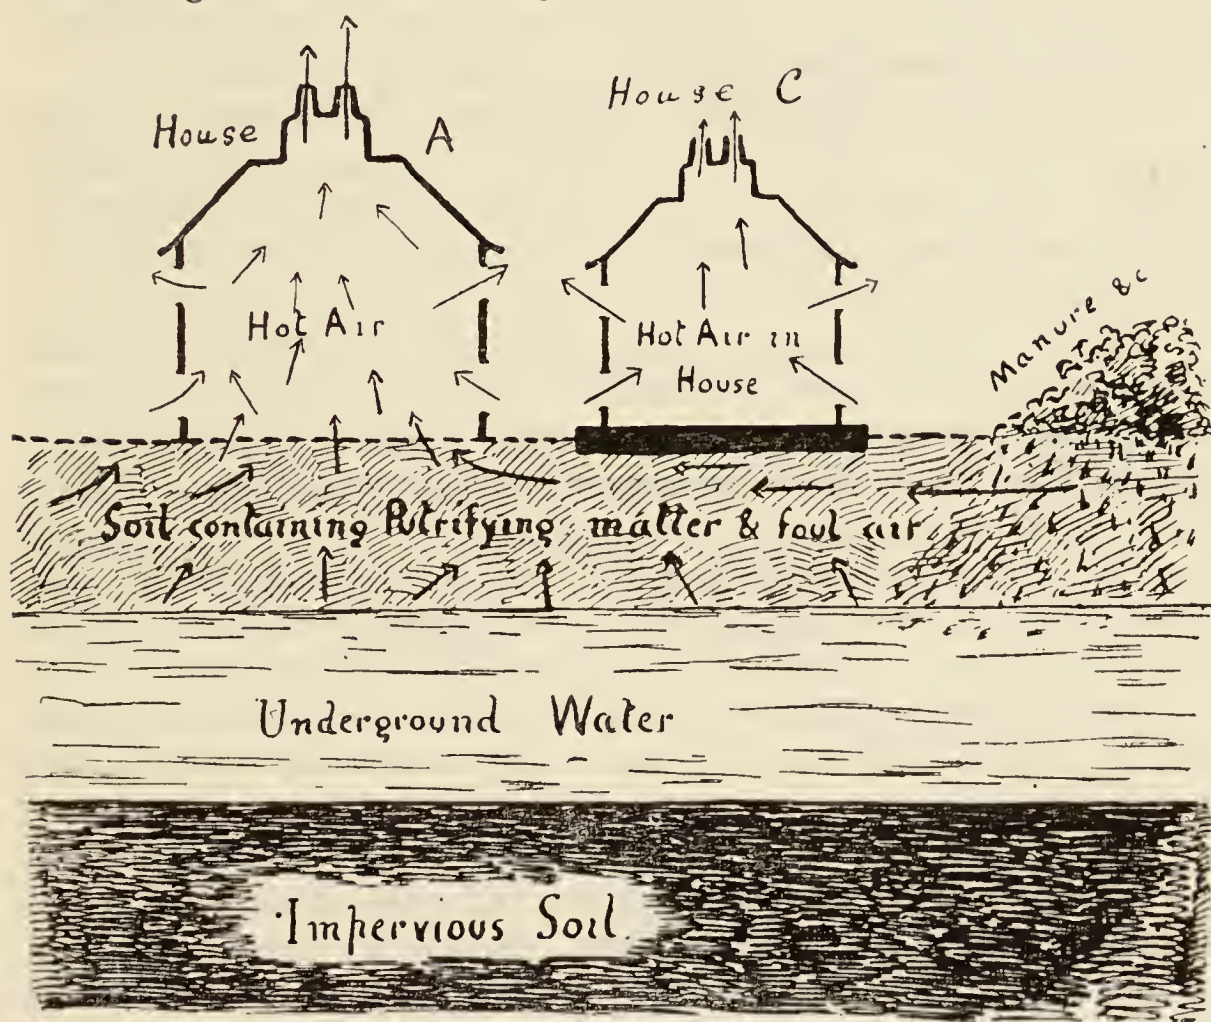 House A
House C
Hot Air
Hot Air in
House
Manure &c
Soil containing Putrifying matter & foul air
Underground Water
Impervious Soil